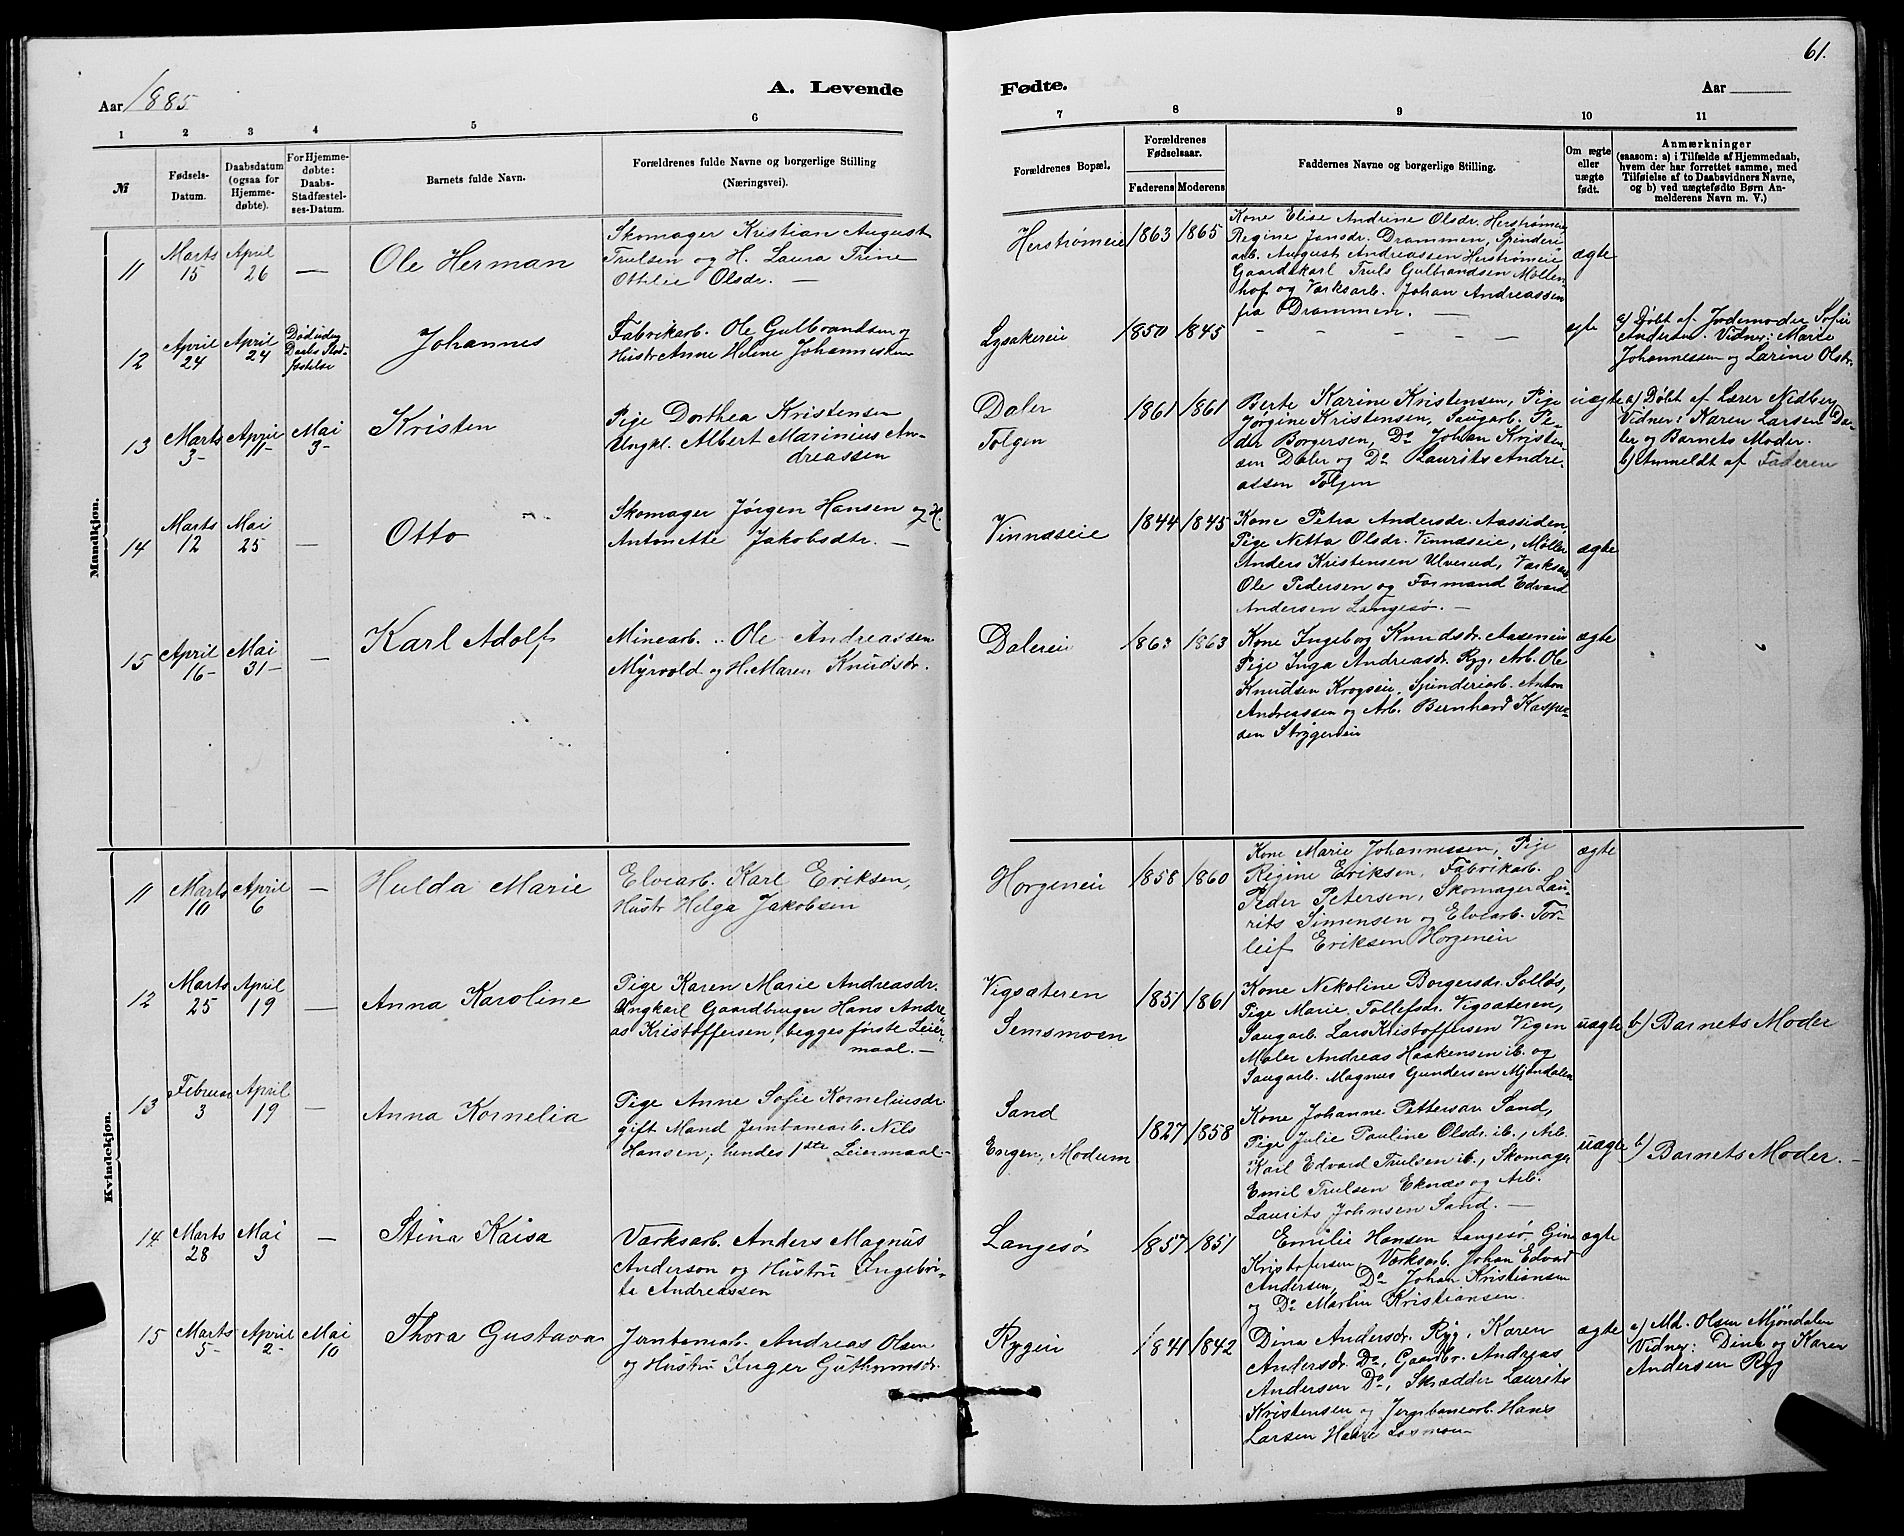 61.
Aar 1885
A. Levende
Fødte.
Aar
1 2 3 4 5 6 7 8 9 10 11
№
Fødsels-
Datum.
Daabsdatum
(ogsaa for
Hjemme-
døbte).
For Hjemme-
døbte:
Daabs-
Stadfæstel-
ses-Datum.
Barnets fulde Navn.
Forældrenes fulde Navne og borgerlige Stilling
(Næringsvei).
Forældrenes Bopæl.
Forældrenes
Fødselsaar.
Faderens
Moderens
Faddernes Navne og borgerlige Stilling.
Om ægte
eller
uægte
født.
Anmærkninger
(saasom: a) i Tilfælde af Hjemmedaab,
hvem der har forrettet samme, med
Tilføielse af to Daabsvidners Navne,
og b) ved uægtefødte Børn An-
melderens Navn m. V.)
Mandkjøn.
11
Marts
15
April
26
—
Ole Herman
Skomager Kristian August
Trulsen og H. Laura Trine
Othilie Olsdr. —
Herstrømeie
1863
1865
Kone Elise Andrine Olsdr. Herstrømeie
Regine Jansdr. Drammen, Spinderi
arb. August Andreassen Herstrømeie
Gaardskarl Truls Gulbrandsen Møllen
hof og Værksarb. Johan Andreassen
fra Drammen. —
ægte
12
April
24
April
24
Død uden
Daabs Stad-
fæstelse
Johannes
Fabrikarb. Ole Gulbrandsen og
Hustr Anne Helene Johannesen
Lysakereie
1850
1845
— — — — —
ægte
a) Døbt af Jordemoder Sofie
Andersen. Vidner: Marie
Johannessen og Larine Olsdr.
13
Marts
3
April
11
Mai
3
Kristen
Pige Dorthea Kristensen
Ungkl. Albert Marinius An-
dreassen
Daler
Tolgen
1861
1861
Berte Karine Kristensen, Pige
Jørgine Kristensen, Saugarb. Pe-
der Borgersen, Do Johan Kristen-
sen Daler og Do Laurits Andre-
assen Tolgen
uægte
a) Døbt af Lærer Nidberg
Vidner: Karen Larsen Da-
ler og Barnets Moder.
b) Anmeldt af Faderen
14
Marts
12
Mai
25
—
Otto
Skomager Jørgen Hansen og H.
Antonette Jakobsdtr. —
Vinnæseie
1844
1845
Kone Petra Andersdr. Aassiden,
Pige Netta Olsdr. Vinnæseie, Møller
Anders Kristensen Ulverud, Værksarb.
Ole Pedersen og Formand Edvard
Andersen Langesø. —
ægte
15
April
16
Mai
31
—
Karl Adolf
Minearb. Ole Andreassen
Myrvold og H. Maren Knudsdr.
Dalereie
1863
1863
Kone Ingeborg Knudsdr. Aaseneie
Pige Inga Andreasdr. Ryg, Arb. Ole
Knudsen Krogseie, Spinderiarb. Anton
Andreassen og Arb. Bernhard Kasper-
sen Stryggereie
ægte
Kvindekjøn.
11
Marts
10
April
6
—
Hulda Marie
Elvearb. Karl Eriksen,
Hustr Helga Jakobsen
Horgeneie
1858
1860
Kone Marie Johannessen, Pige
Regine Eriksen, Fabrikarb.
Peder Petersen, Skomager Lau-
rits Simensen og Elvearb. Tor-
leif Eriksen Horgeneie
ægte
12
Marts
25
April
19
—
Anna Karoline
Pige Karen Marie Andreasdr.
Ungkarl Gaardbruger Hans Andre-
as Kristoffersen, begges første Leier-
maal. —
Vigsæteren
Semsmoen
1851
1861
Kone Nekoline Borgersdr. Solløs,
Pige Marie Tollefsdr. Vigsæteren,
Saugarb. Lars Kristoffersen Vigen
Maler Andreas Haakensen ib. og
Saugarb. Magnus Gundersen Mjøndalen
uægte
b) Barnets Moder
13
Februar
3
April
19
—
Anna Kornelia
Pige Anne Sofie Korneliusdr
gift Mand Jernbanearb. Nils
Hansen; hendes 1ste Leiermaal. —
Sand
Engen, Modum
1827
1858
Kone Johanne Pettersdr Sand,
Pige Julie Pauline Olsdr. ib., Arb.
Karl Edvard Trulsen ib., Skomager
Emil Trulsen Eknæs og Arb.
Laurits Johnsen Sand. —
uægte
b) Barnets Moder. —
14
Marts
28
Mai
3
—
Stina Kaisa
Værksarb. Anders Magnus
Anderson og Hustru Ingebri-
ta Andreassen
Langesø
1857
1851
Emilie Hansen Langesø, Gina
Kristofersen, Værksarb. Johan Edvard
Andersen, Do Johan Kristiansen
og Do Martin Kristiansen.
ægte
15
Marts
5
April
2
Mai
10
Thora Gustava
Jernbanearb. Andreas Olsen
og Hustru Inger Guthormsdr.
Rygeie
1841
1842
Dina Andersdr. Ryg, Karen
Andersdr. Do, Gaardbr. Andreas
Andersen Do, Skrædder Laurits
Kristensen og Jernbanearb. Hans
Larsen
ægte
a) Md. Olsen Mjøndalen
Vidner: Dina og Karen
Andersen Ryg